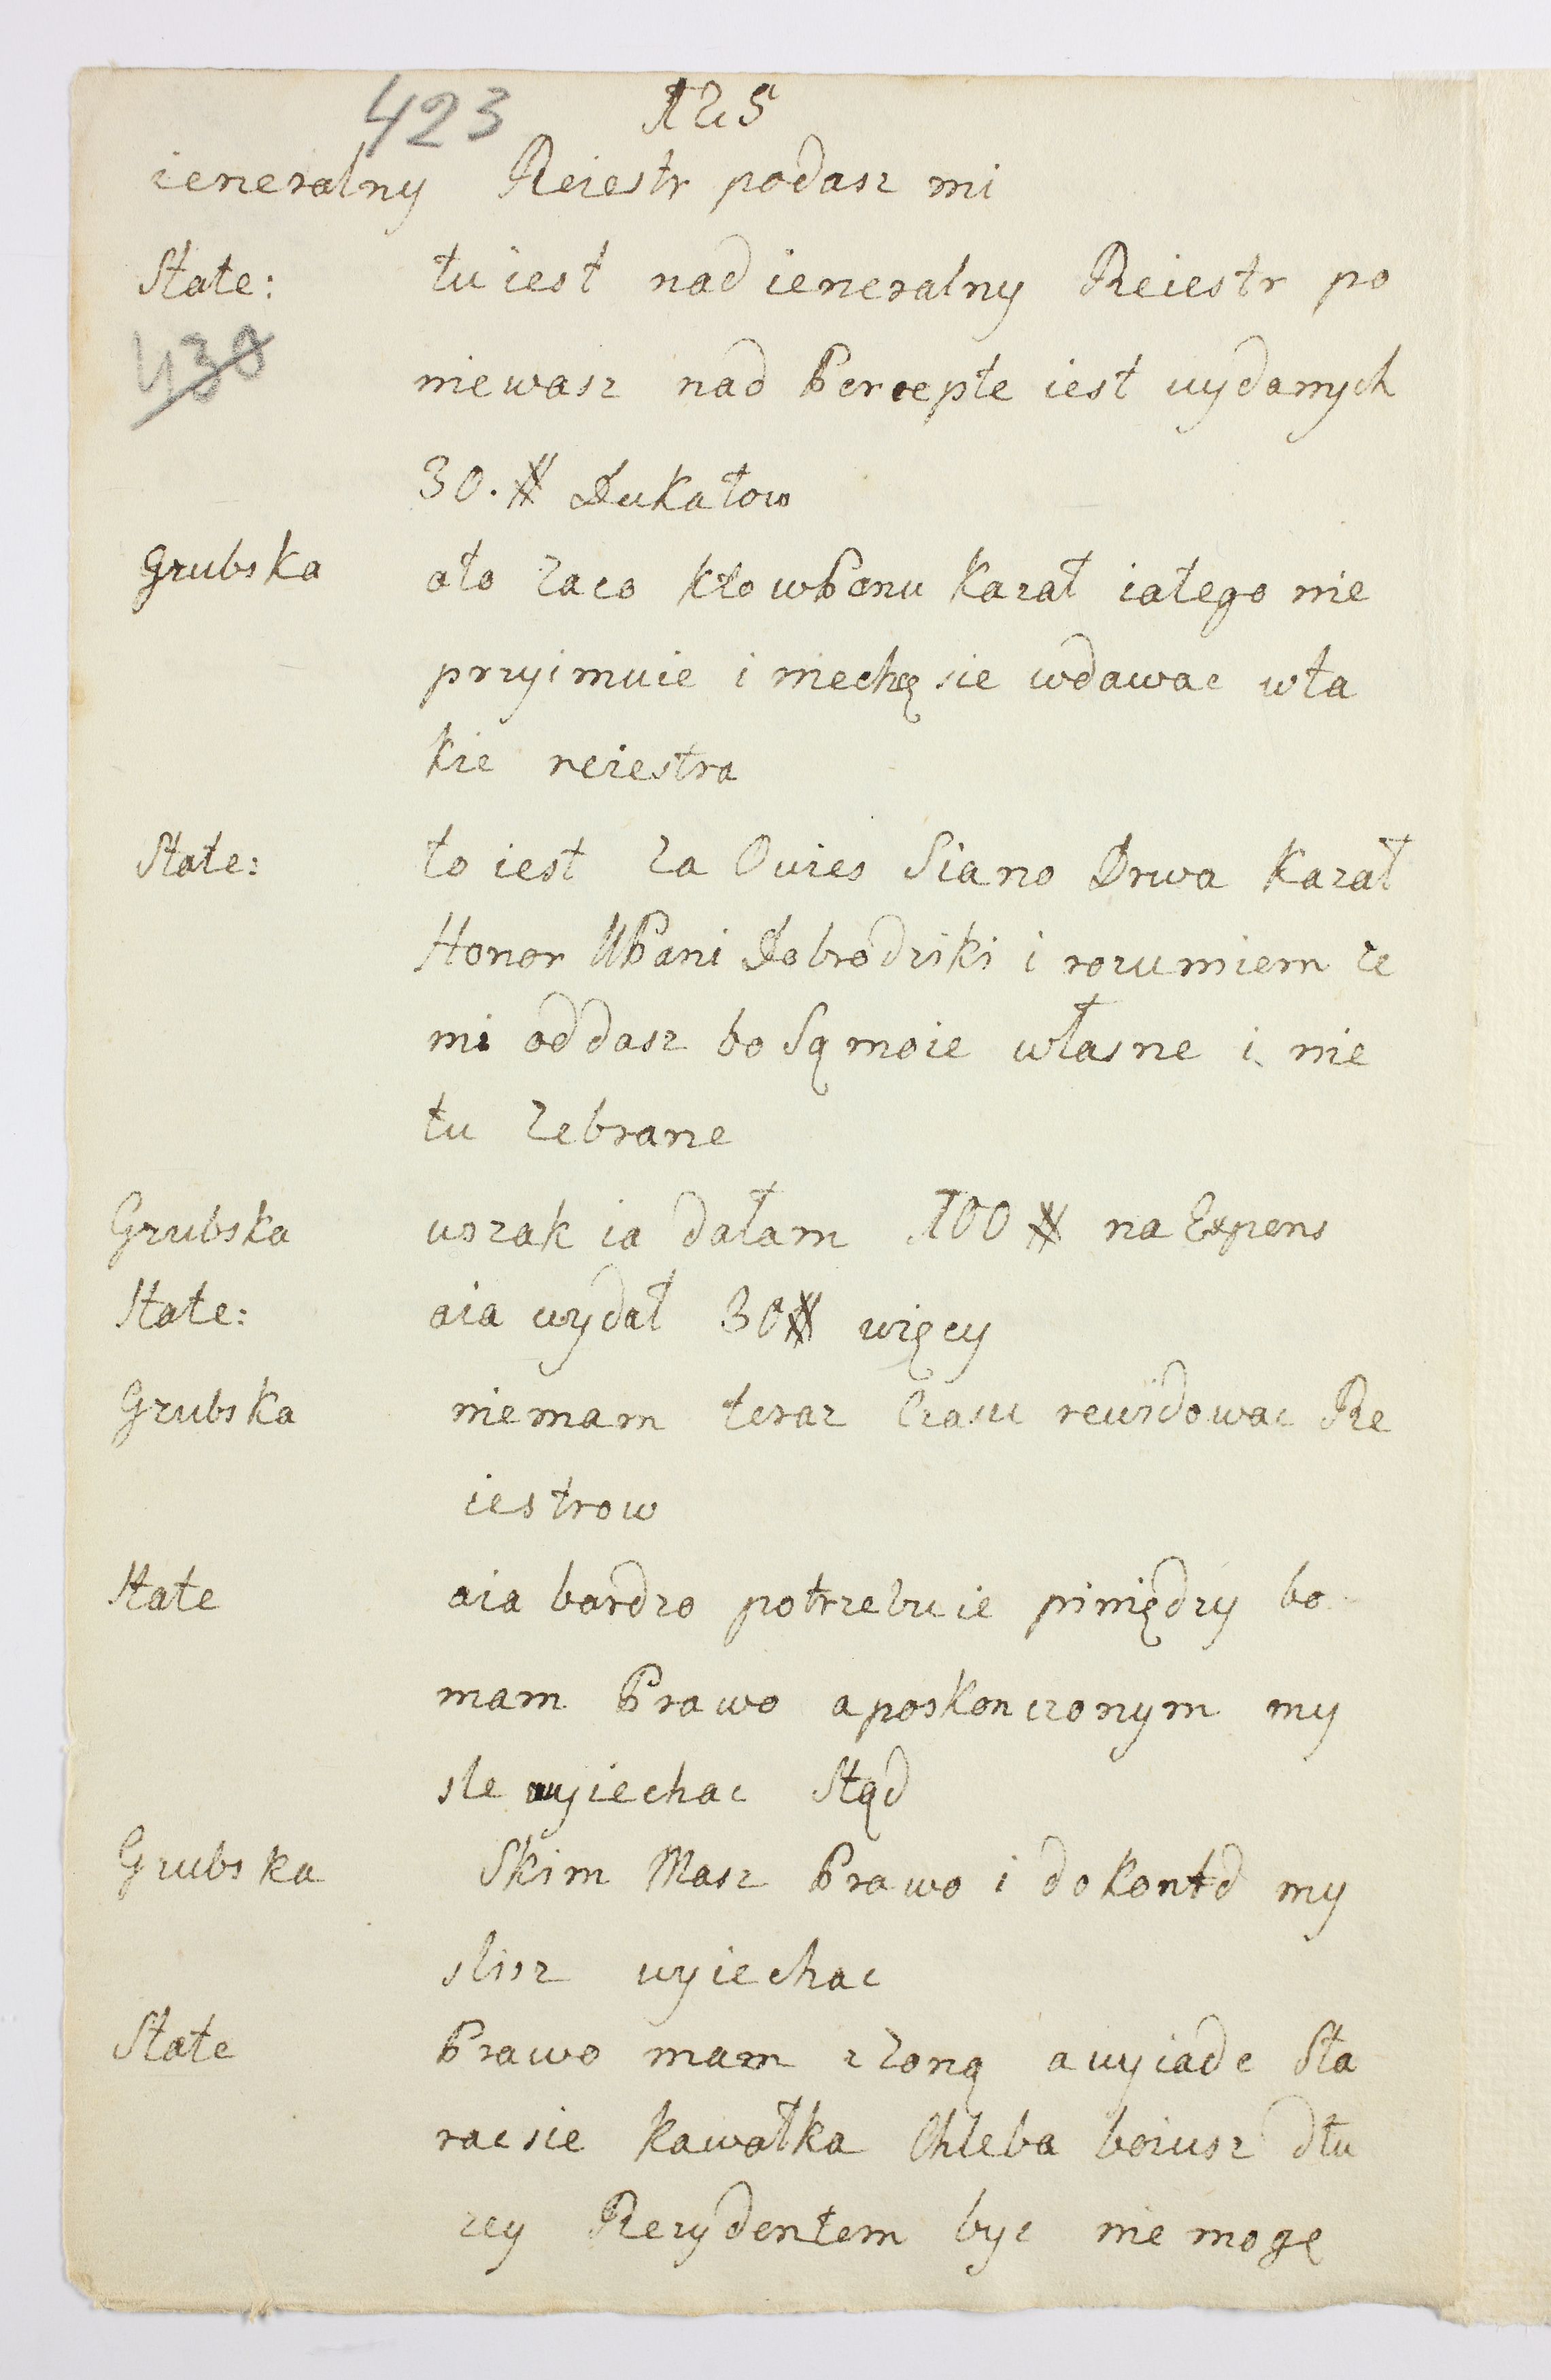 423 125
ieneralny Reiestr podasz mi
State: tu iest nad ieneralny Reiestr po
430
niewasz nad Percepte iest wydanych
30. # Dukatow
Grubska ato zaco kto wPanu Kazał iatego nie
przyimuie i niechcę sie wdawac wta
kie reiestra
State: to iest za Owies Siano Drwa Kazał
Honor WPani Dobrodziki i rozumiem ze
mi oddasz bo Są moie własne i nie
tu zebrane
Grubska wszak ia dałam 100 # na Expens
State: aia wydał 30 # więcy
Grubska niemam teraz Czasu rewidowac Re
iestrow
State aia bardzo potrzebuie piniędzy bo
mam Prawo aposkonczonym my
sle wyiechac Stąd
Grubska Skim Masz Prawo i dokontd my
slisz wyiechac
State Prawo mam zzoną awyiade Sta
racsie kawałka Chleba boiusz dłu
zey Rezydentem byc nie mogę